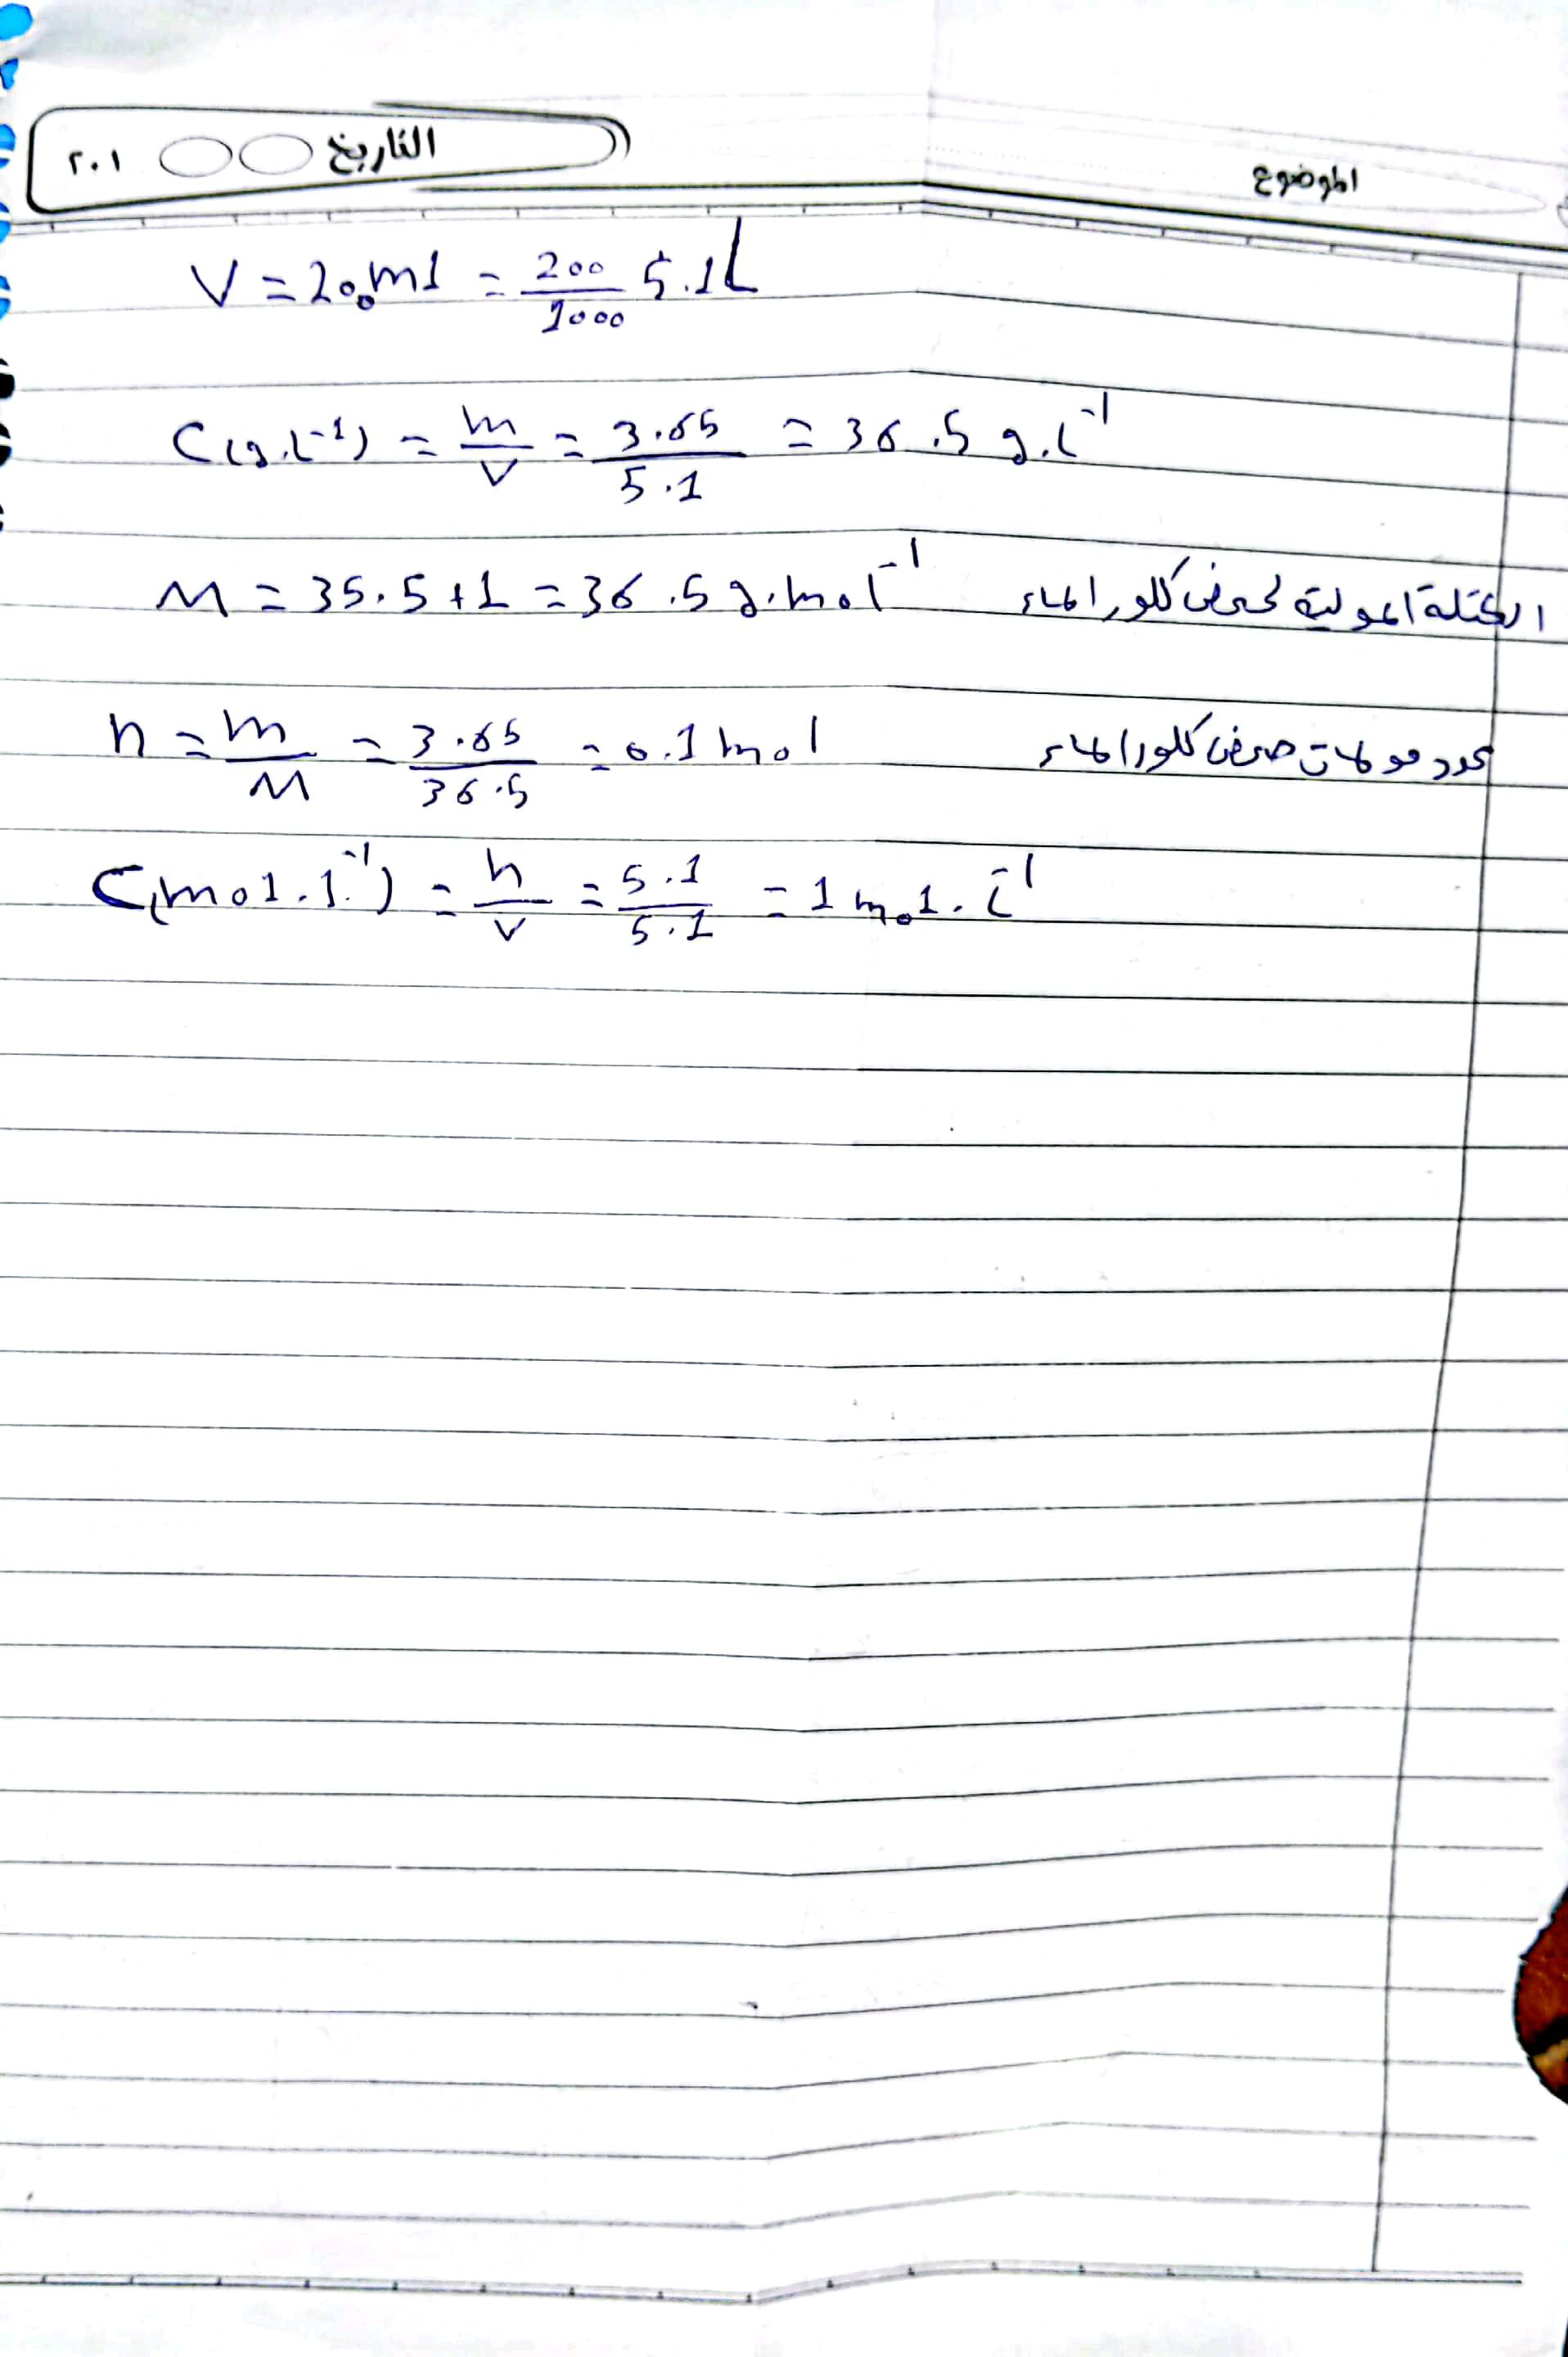 الموضوع
التاريخ ٢٠١
V = 200ml = 200/1000 5.1L
C(g.L-1) = m/V = 3.65/5.1 = 36.5 g.L-1
M = 35.5 + 1 = 36.5 g.mol-1 الكتلة المولية لحمض كلور الماء
n = m/M = 3.65/36.5 = 0.1 mol عدد مولات حمض كلور الماء
C(mol.l-1) = n/V = 5.1/5.1 = 1 mol.L-1